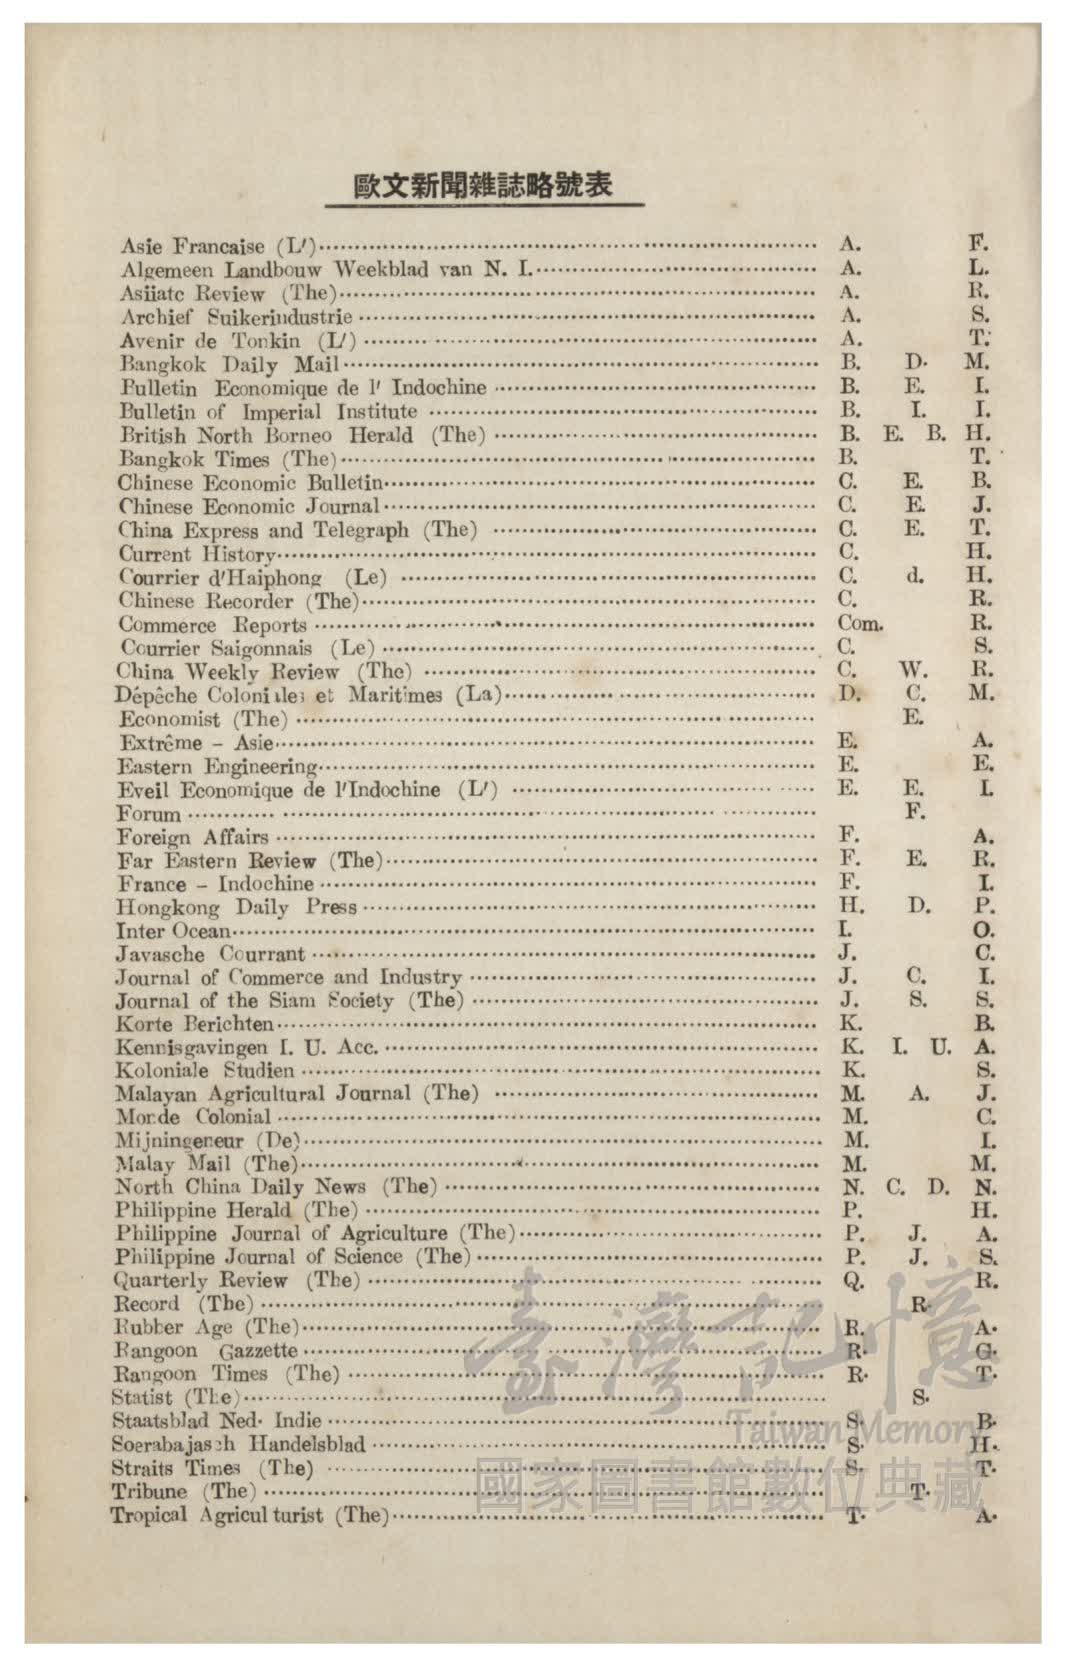 歐文新聞雜誌略號表
Asie Francaise (L')·················· A. F.
Algemeen Landbouw Weekblad van N. I.·················· A. L.
Asiiatc Review (The)·················· A. R.
Archief Suikerindustrie ·················· A. S.
Avenir de Tonkin (L') ·················· A. T.
Bangkok Daily Mail·················· B. D. M.
Bulletin Economique de l' Indochine ·················· B. E. I.
Bulletin of Imperial Institute ·················· B. I. I.
British North Borneo Herald (The) ·················· B. E. B. H.
Bangkok Times (The)·················· B. T.
Chinese Economic Bulletin·················· C. E. B.
Chinese Economic Journal·················· C. E. J.
China Express and Telegraph (The) ·················· C. E. T.
Current History·················· C. H.
Courrier d'Haiphong (Le) ·················· C. d. H.
Chinese Recorder (The)·················· C. R.
Commerce Reports ·················· Com. R.
Courrier Saigonnais (Le) ·················· C. S.
China Weekly Review (The) ·················· C. W. R.
Dépêche Coloniales et Maritimes (La)·················· D. C. M.
Economist (The) ·················· E.
Extrême – Asie·················· E. A.
Eastern Engineering·················· E. E.
Eveil Economique de l'Indochine (L') ·················· E. E. I.
Forum ·················· F.
Foreign Affairs ·················· F. A.
Far Eastern Review (The)·················· F. E. R.
France – Indochine ·················· F. I.
Hongkong Daily Press ·················· H. D. P.
Inter Ocean·················· I. O.
Javasche Courrant ·················· J. C.
Journal of Commerce and Industry ·················· J. C. I.
Journal of the Siam Society (The) ·················· J. S. S.
Korte Berichten·················· K. B.
Kennisgavingen I. U. Acc. ·················· K. I. U. A.
Koloniale Studien ·················· K. S.
Malayan Agricultural Journal (The) ·················· M. A. J.
Monde Colonial ·················· M. C.
Mijningeneur (De)·················· M. I.
Malay Mail (The)·················· M. M.
North China Daily News (The) ·················· N. C. D. N.
Philippine Herald (The) ·················· P. H.
Philippine Journal of Agriculture (The)·················· P. J. A.
Philippine Journal of Science (The) ·················· P. J. S.
Quarterly Review (The) ·················· Q. R.
Record (The) ·················· R.
Rubber Age (The)·················· R. A.
Rangoon Gazzette ·················· R. G.
Rangoon Times (The) ·················· R. T.
Statist (The)·················· S.
Staatsblad Ned. Indie ·················· S. B.
Soerabajasch Handelsblad ·················· S. H.
Straits Times (The) ·················· S. T.
Tribune (The) ·················· T.
Tropical Agricul turist (The)·················· T. A.
臺灣記憶
Taiwan Memory
國家圖書館數位典藏